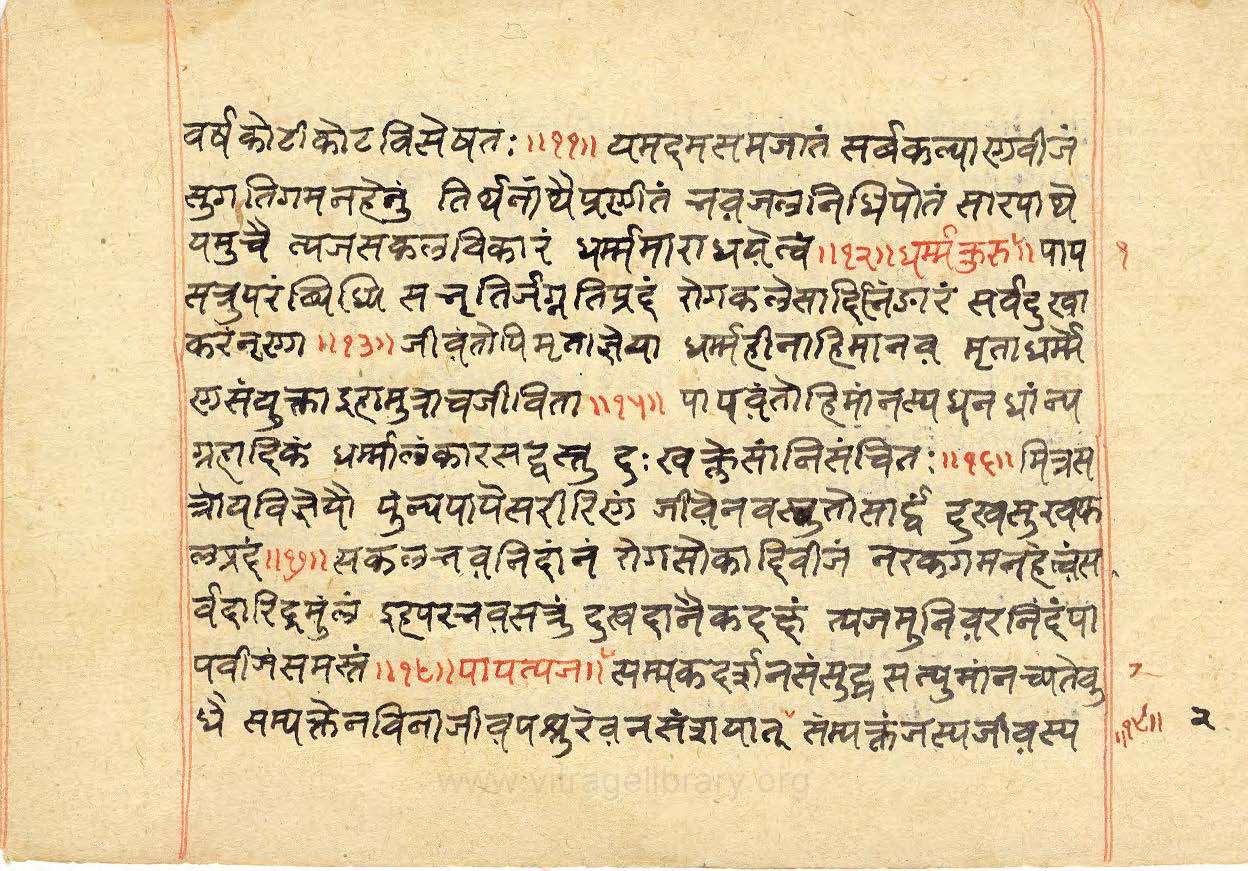 वर्षकोटीकोटविसेषतः ॥११॥ यमदमसमजातं सर्वकल्याणवीजं
सुगतिगमनहेतुं तिर्थनांथैप्रणीतं नवजलनिधिपोतं सारपाथे
यमुचै त्यजसकलविकारं धर्म्ममाराधयेत्वं॥१२॥धर्म्मकुरु॥पाप १
सत्रुपरं विधि सनृतिर्जग्रतिप्रदं रोगकलेसादि सर्वदुखा
करंनृणा ॥१३॥ जीवंतोपिमृताज्ञेया धर्म्महीनाहिमानव मृताधर्म्मे
णसंयुक्ताइहामुत्राचजीविता॥१५॥ पापवंतोहिमांनस्यधनधांन्य
ग्रहादिकं धर्म्मालंकारसद्वस्तु दुःखक्लेसांनिसंचितः॥१६॥मित्रस
त्रोयविज्ञेयौ पुंन्यपापैसरीरिणं जीवेनवस्तुतोसार्द्धं दुखसुखफ
लप्रदं॥१७॥सकलनवनिदांनं रोगसौकादिवीजं नरकगमनहेत्वंस
र्वदारिद्रमुंलं इहपरनवसत्रुं दुखदानैकदक्षं त्यजमुनिवरनिंदंपा
पवीजंसमस्तं॥१८॥पापत्यज॥सम्यकदर्शनसंसुद्ध सत्युमांनच्यतेवु २
धै सम्यक्तेनविनाजीवपश्रुरेवनसंशयात् संम्यक्तंजस्यजीवस्य ॥१९॥ २
www.vitragelibrary.org